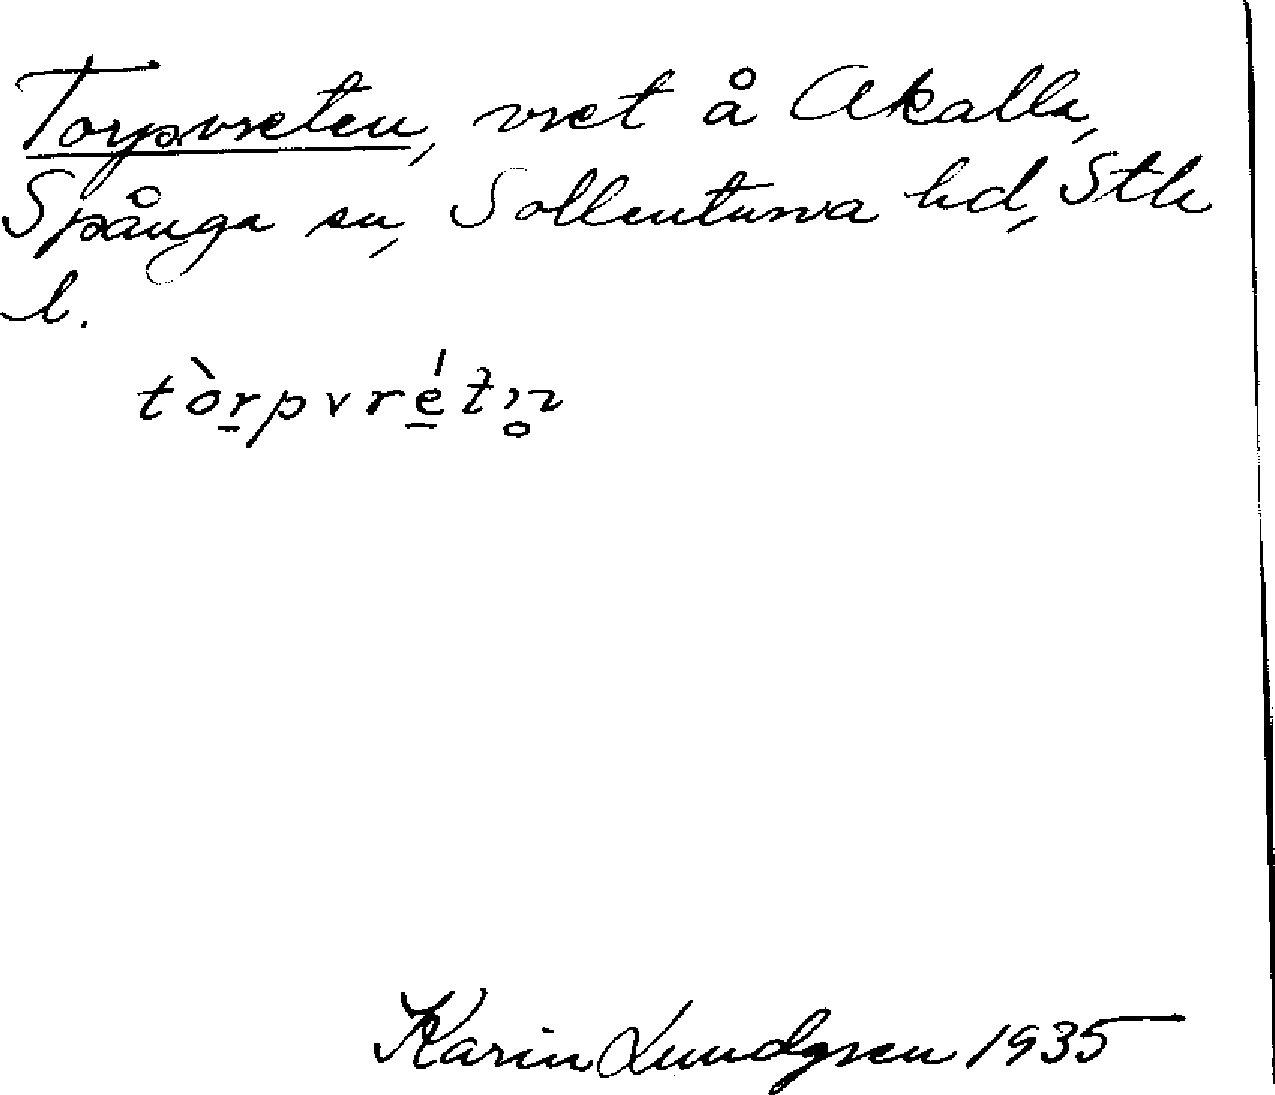 Torpvreten, vret å Akalla,
Spånga sn, Sollentuna hd, Sth
l.
tòrpvrétn̥
Karin Lundgren 1935